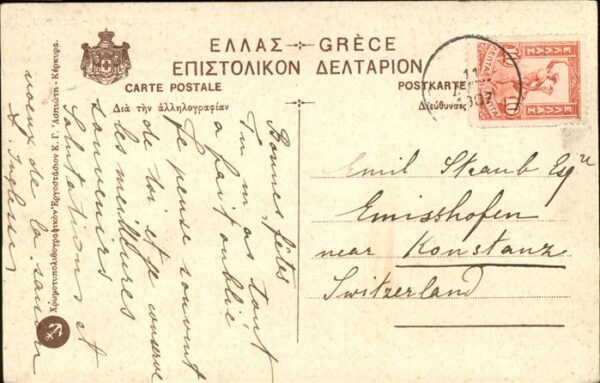 ΕΛΛΑΣ GRÈCE
ΕΠΙΣΤΟΛΙΚΟΝ ΔΕΛΤΑΡΙΟΝ
CARTE POSTALE
POSTKARTE
Διὰ τὴν ἀλληλογραφίαν
Διεύθυνσις
11
1907
ΕΛΛΑΣ
10
Bonnes fêtes
Tu m'as tout
à fait oublié
Je pense souvent
de toi et je conserve
les meilleures
souvenirs
Salutations et
voeux de la
Emil Straub Esqre
Emisshofen
near Konstanz
Switzerland
Χρωμοτυπολιθογραφικὸν Ἐργοστάσιον Κ. Γ. Ἀσπιώτη - Κέρκυρα.